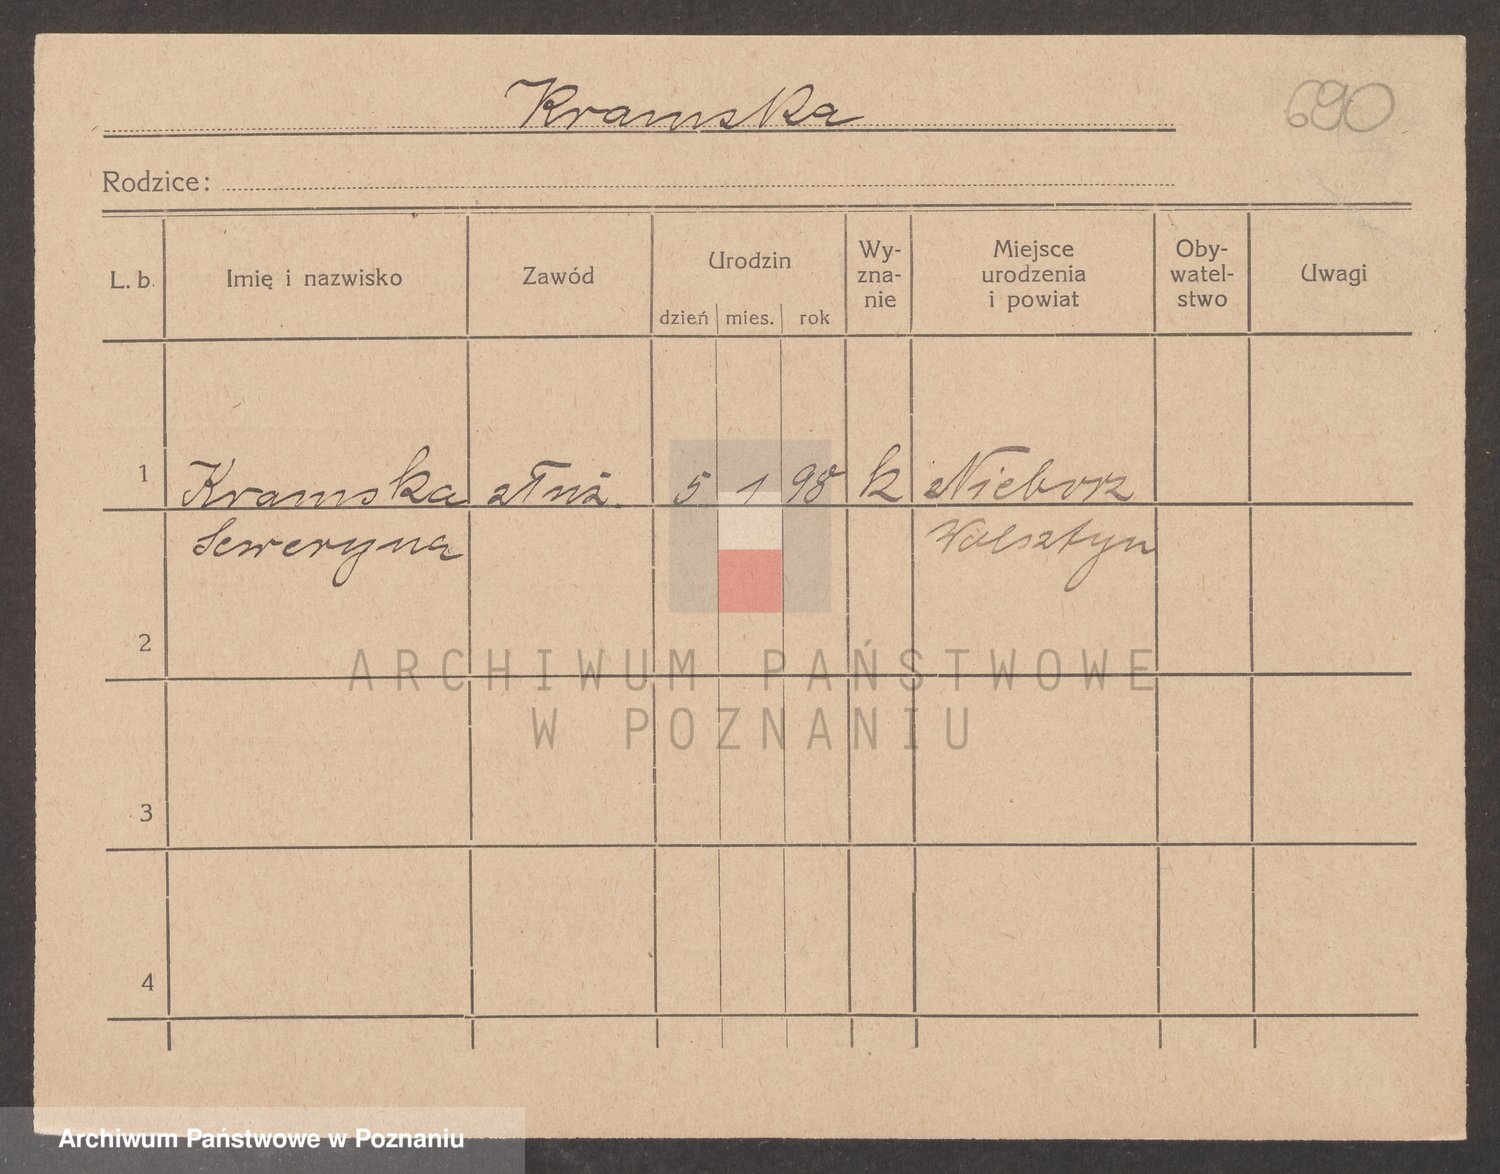 Kramska
690
Rodzice:
L. b. Imię i nazwisko Zawód Urodzin dzień mies. rok Wy-zna-nie Miejsce urodzenia i powiat Oby-watel-stwo Uwagi
1 Kramska służ. 5 1 98 k Nieborz
Seweryna Wolsztyn
2
ARCHIWUM PAŃSTWOWE
W POZNANIU
3
4
Archiwum Państwowe w Poznaniu